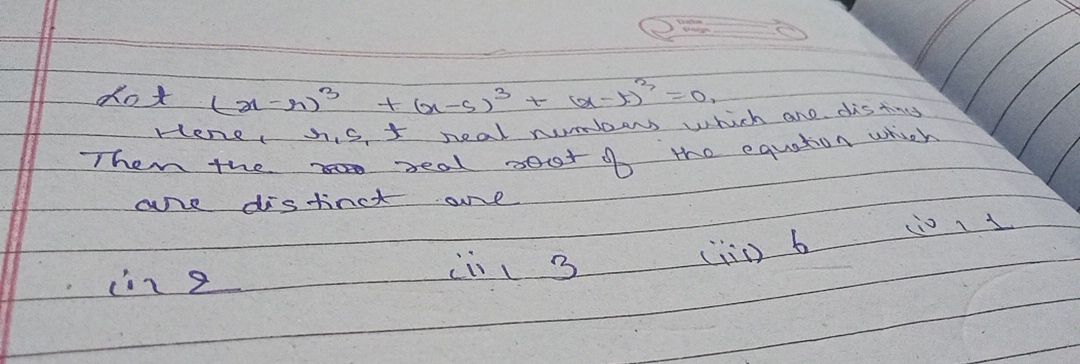 Let (x-r)³ + (x-s)³ + (x-t)³ = 0,
Here, r, s, t real numbers which are distinct
Then the real root of the equation which
are distinct are
(i) 2 (ii) 3 (iii) 6 (iv) 1